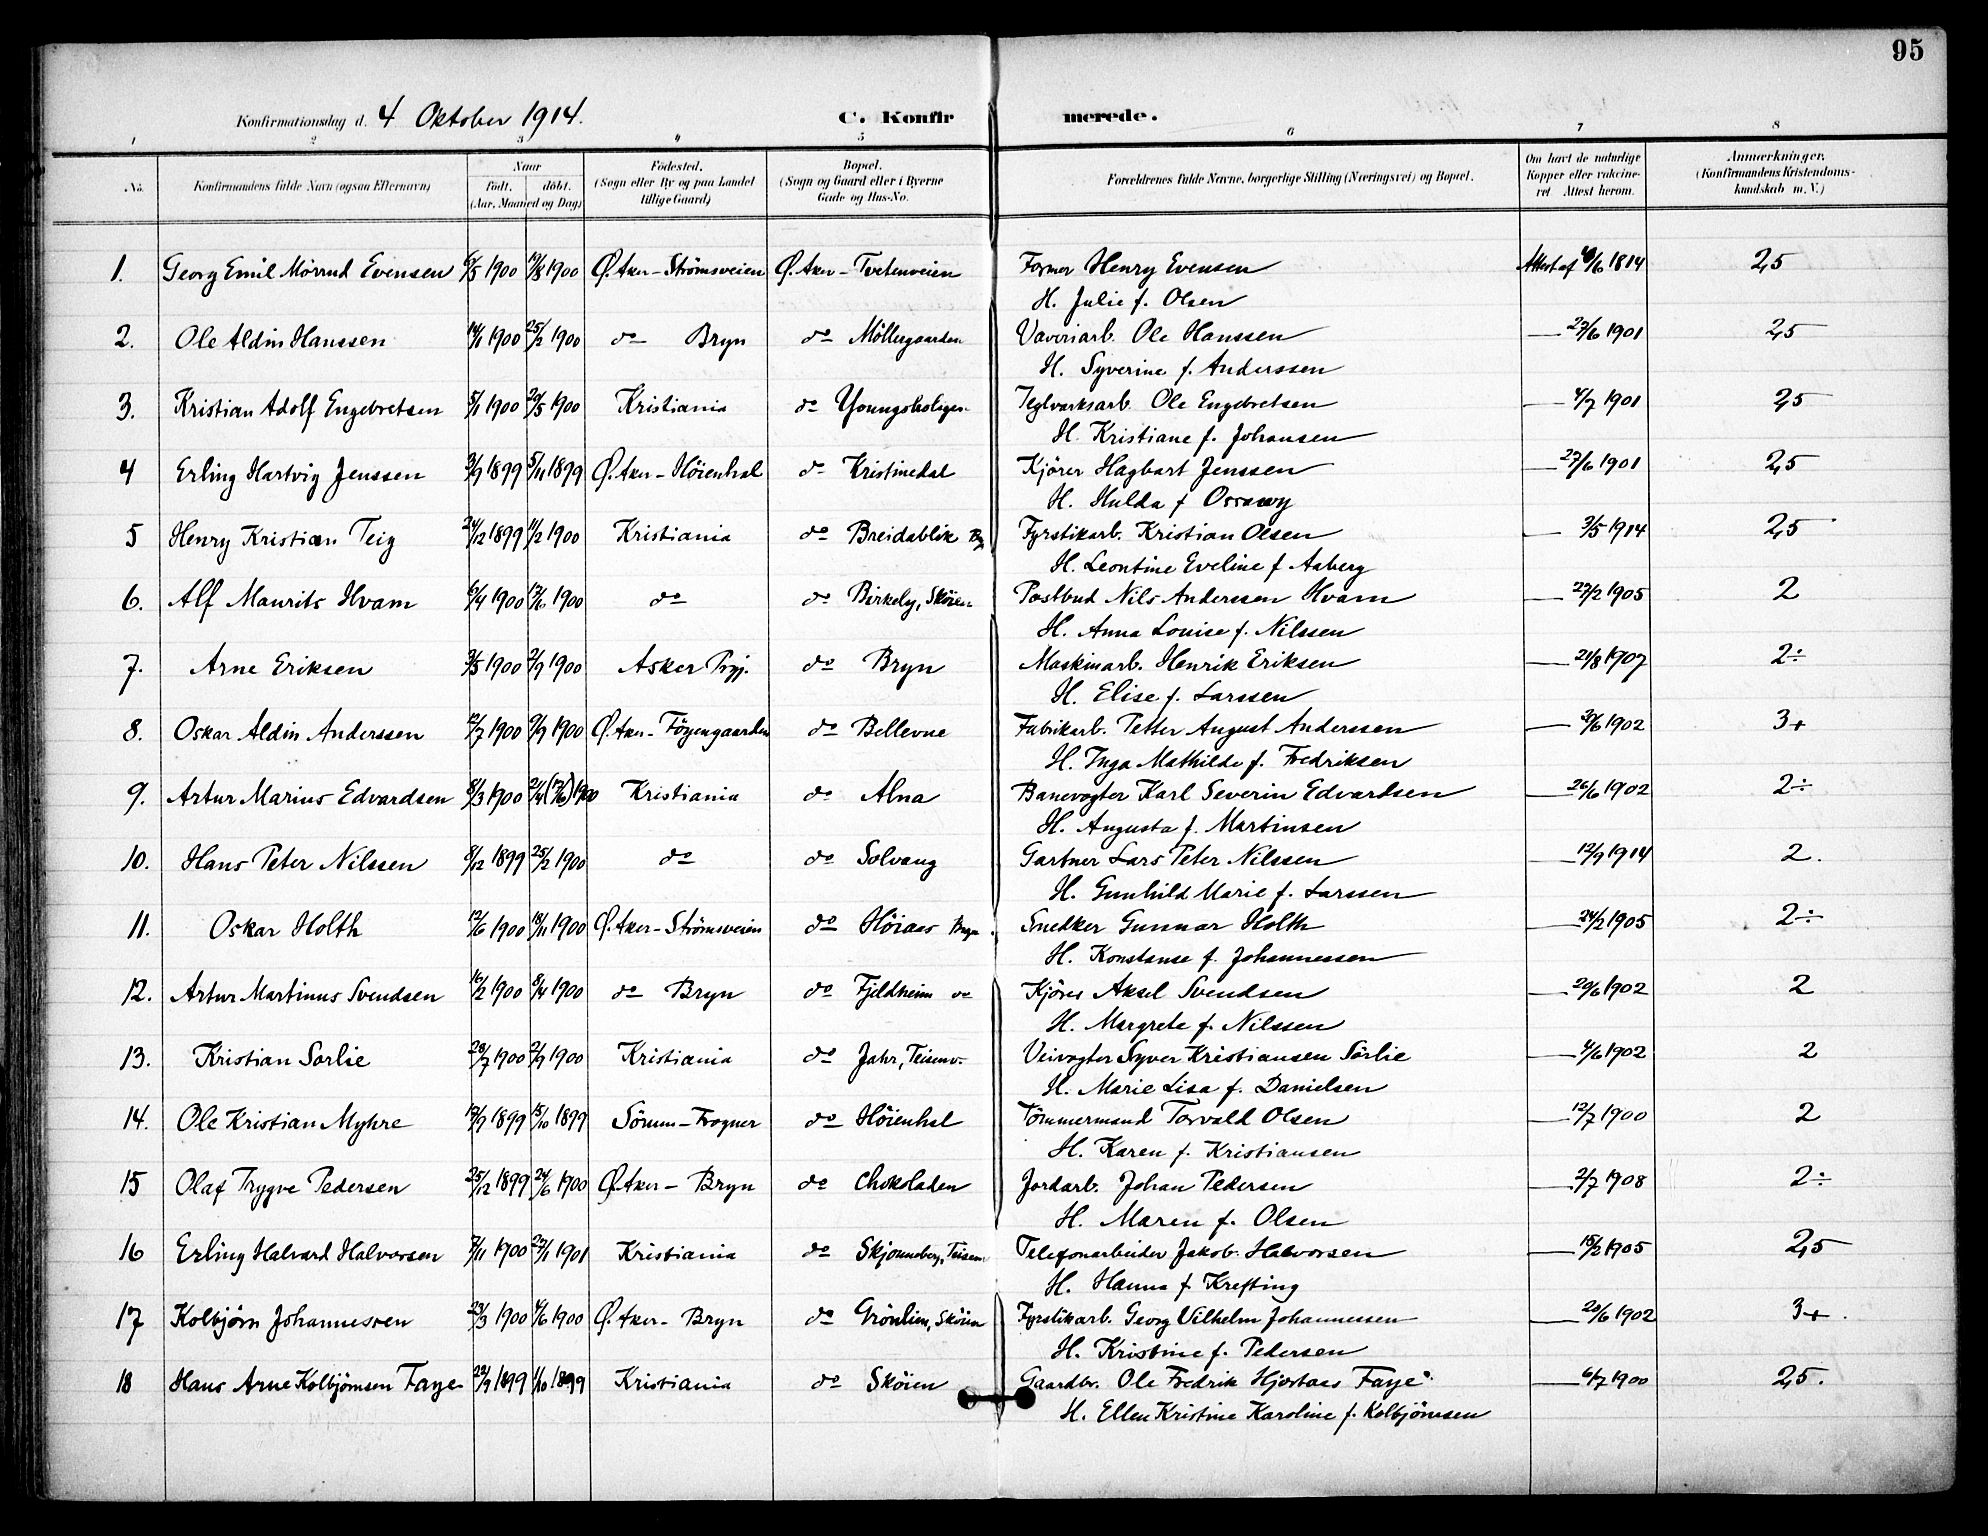 95
Konfirmationsdag d. 4 Oktober 1914. C. Konfirmerede.
1 2 3 4 5 6 7 8
No. Konfirmandens fulde Navn (ogsaa Efternavn) Naar født. døbt. (Aar, Maaned og Dag) Fødested. (Sogn eller By og paa Landet tillige Gaard) Bopæl. (Sogn og Gaard eller i Byerne Gade og Hus-No. Forældrenes fulde Navne, borgerlige Stilling (Næringsvei) og Bopæl. Om havt de naturlige Kopper eller vakcineret Attest herom. Anmærkninger. (Konfirmandens Kristendomskundskab m. V.)
1. Georg Emil Mörrud Evensen /5 1900 /8 1900 Ø. Aker - Strömsveien Ø. Aker - Tvetenveien Former Henry Evensen Attest af /6 1814 2,5
H. Julie f. Olsen
2. Ole Aldin Hanssen 14/1 1900 25/2 1900 do Bryn do Möllergaarden Væveriarb. Ole Hanssen — 27/6 1901 2,5
H. Syverine f. Anderssen
3. Kristian Adolf Engebretsen 5/1 1900 20/5 1900 Kristiania do Teglværksarb. Ole Engebretsen — 4/7 1901 2,5
H. Kristiane f. Johansen
4 Erling Hartvig Jenssen 3/9 1899 5/11 1899 Ø. Aker - Höienhal do Kristinedal Kjörer Hagbart Jenssen — 27/6 1901 2,5
H. Hulda f
5 Henry Kristian Teig 24/12 1899 11/2 1900 Kristiania do Breidablik Fyrstikarb. Kristian Olsen — 3/5 1914 2,5
H. Leontine Eveline f. Aaberg
6. Alf Maurits Hvam 6/4 1900 17/6 1900 do do Birkely, Sköien Postbud Nils Anderssen Hvam — 27/2 1905 2
H. Anna Louise f. Nilssen
7. Arne Eriksen 3/5 1900 2/9 1900 Asker Pgj. do Bryn Maskinarb. Henrik Eriksen — 21/8 1907 2÷
H. Elise f. Larssen
8. Oskar Aldin Anderssen 12/7 1900 9/9 1900 Ø. Aker - Töyengaarden do Bellevue Fabrikarb. Petter August Anderssen — 30/6 1902 3+
H. Inga Mathilde f. Fredriksen
9. Artur Marius Edvardsen 8/3 1900 2/4 (17/6) 1900 Kristiania do Alna Banevogter Karl Severin Edvardsen — 26/6 1902 2÷
H. Augusta f. Martinsen
10. Hans Peter Nilssen 8/12 1899 25/2 1900 do do Solvang Gartner Lars Peter Nilssen — 12/9 1914 2.
H. Gunhild Marie f. Larssen
11. Oskar Holth 12/6 1900 18/11 1900 Ø. Aker - Strömsveien do Höiaas Bryn Snedker Gunnar Holth — 24/2 1905 2÷
H. Konstanse f. Johannessen
12. Artur Martinus Svendsen 16/2 1900 8/4 1900 do Bryn do Fjeldheim do Kjörer Aksel Svendsen — 20/6 1902 2
H. Margrete f. Nilssen
13. Kristian Sorlie 28/7 1900 2/9 1900 Kristiania do Jahr, Teisenv. Veivogter Syver Kristiansen Sörlie — 4/6 1902 2
H. Marie Lisa f. Danielsen
14. Ole Kristian Myhre 1899 15/10 1899 Sörum - Frogner do Höienhal Tömmermand Torvald Olsen — 12/7 1900 2
H. Karen f. Kristiansen
15 Olaf Trygve Pedersen 25/12 1899 24/6 1900 Ø. Aker - Bryn do Chokoladen Jordarb. Johan Pedersen — 2/7 1908 2÷
H. Maren f. Olsen
16 Erling Halvard Halvorsen 7/11 1900 27/1 1901 Kristiania do Skjønneberg, Teisen Telefonarbeider Jakob Halvorsen — 15/2 1905 2,5
H. Hanna f Krefting
17 Kolbjörn Johannessen 23/3 1900 4/6 1900 Ø. Aker - Bryn do Grönlien, Sköien Fyrstikarb. Georg Vilhelm Johannessen — 20/6 1902 3+.
H. Kristine f. Pedersen
18 Hans Arne Kolbjörnsen Faye 22/9 1899 1/10 1899 Kristiania do Sköien Gaardbr. Ole Fredrik Hjortaas Faye — 6/7 1900 2,5.
H. Ellen Kristine Karoline f. Kolbjörnsen